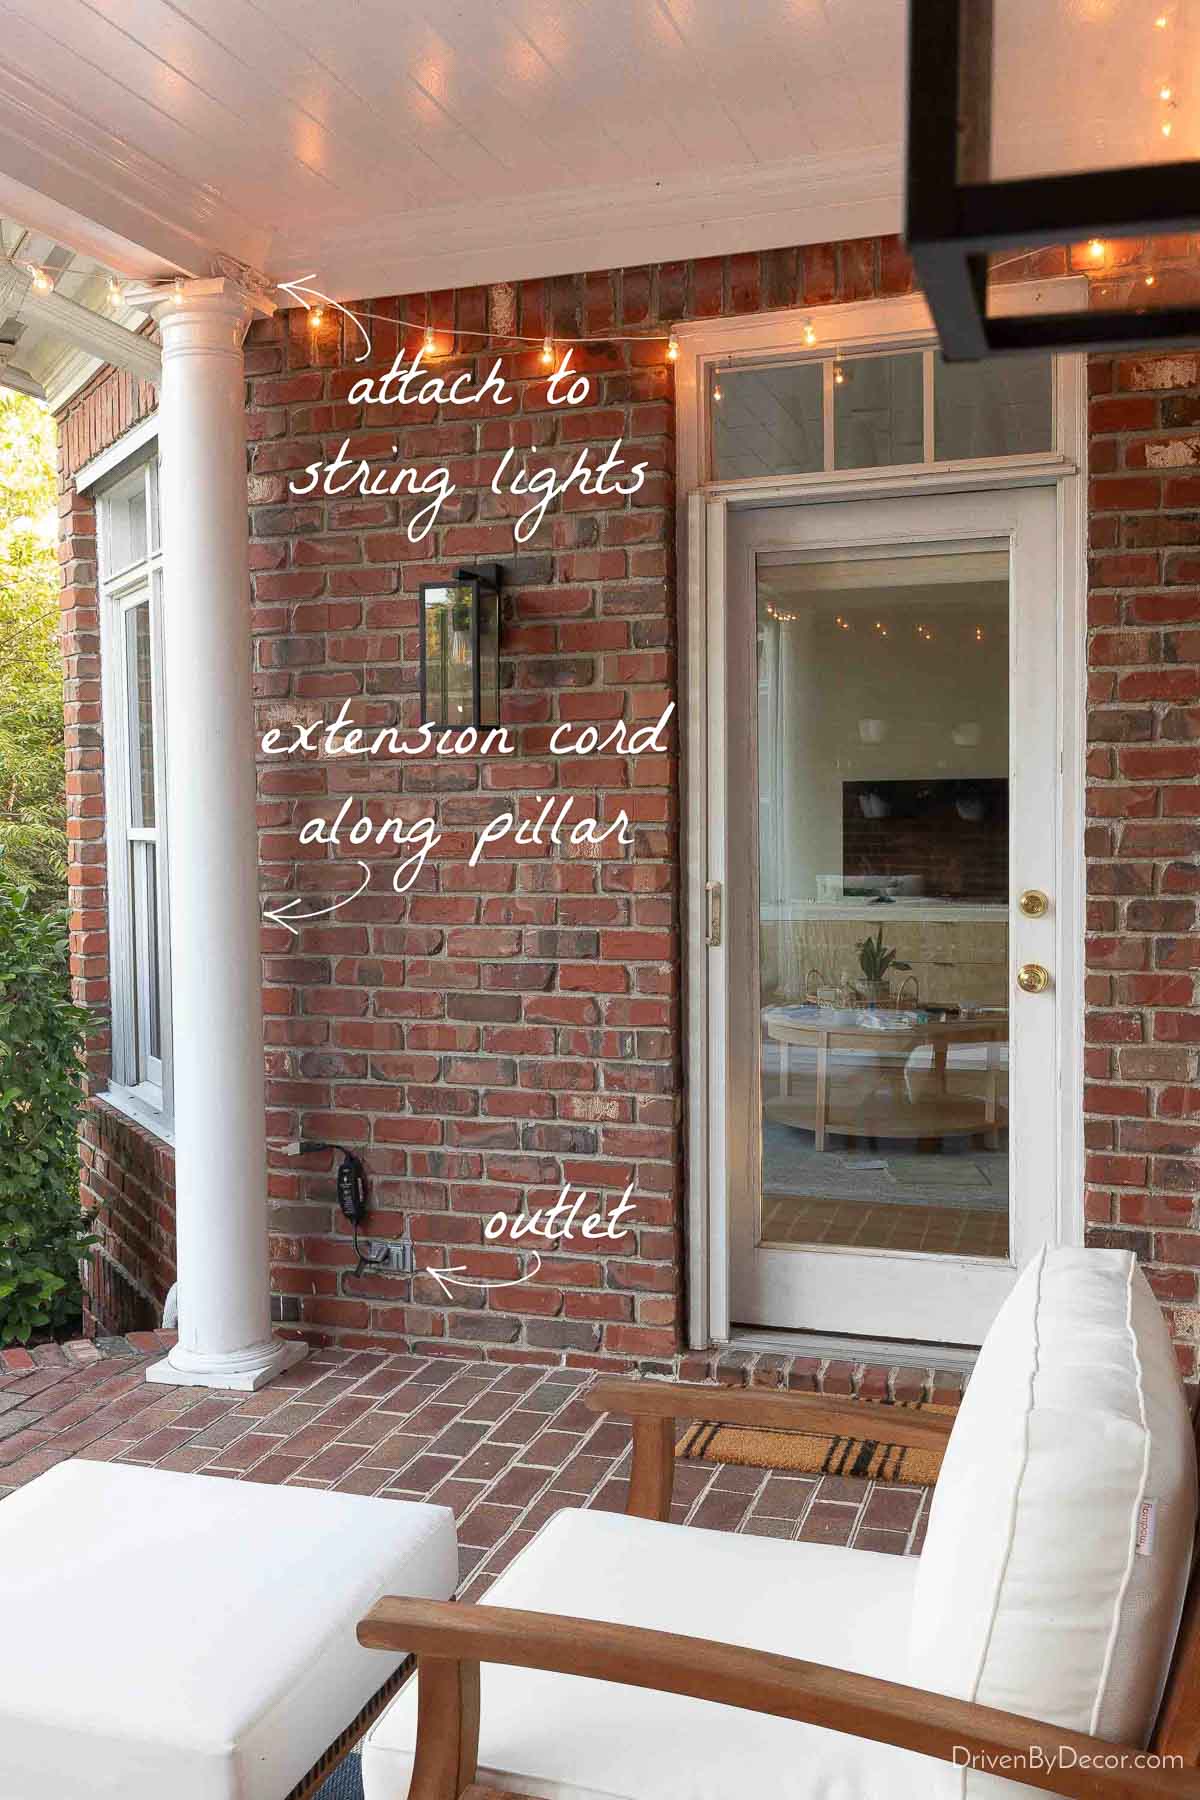 attach to
string lights
extension cord
along pillar
outlet
modway
DrivenByDecor.com